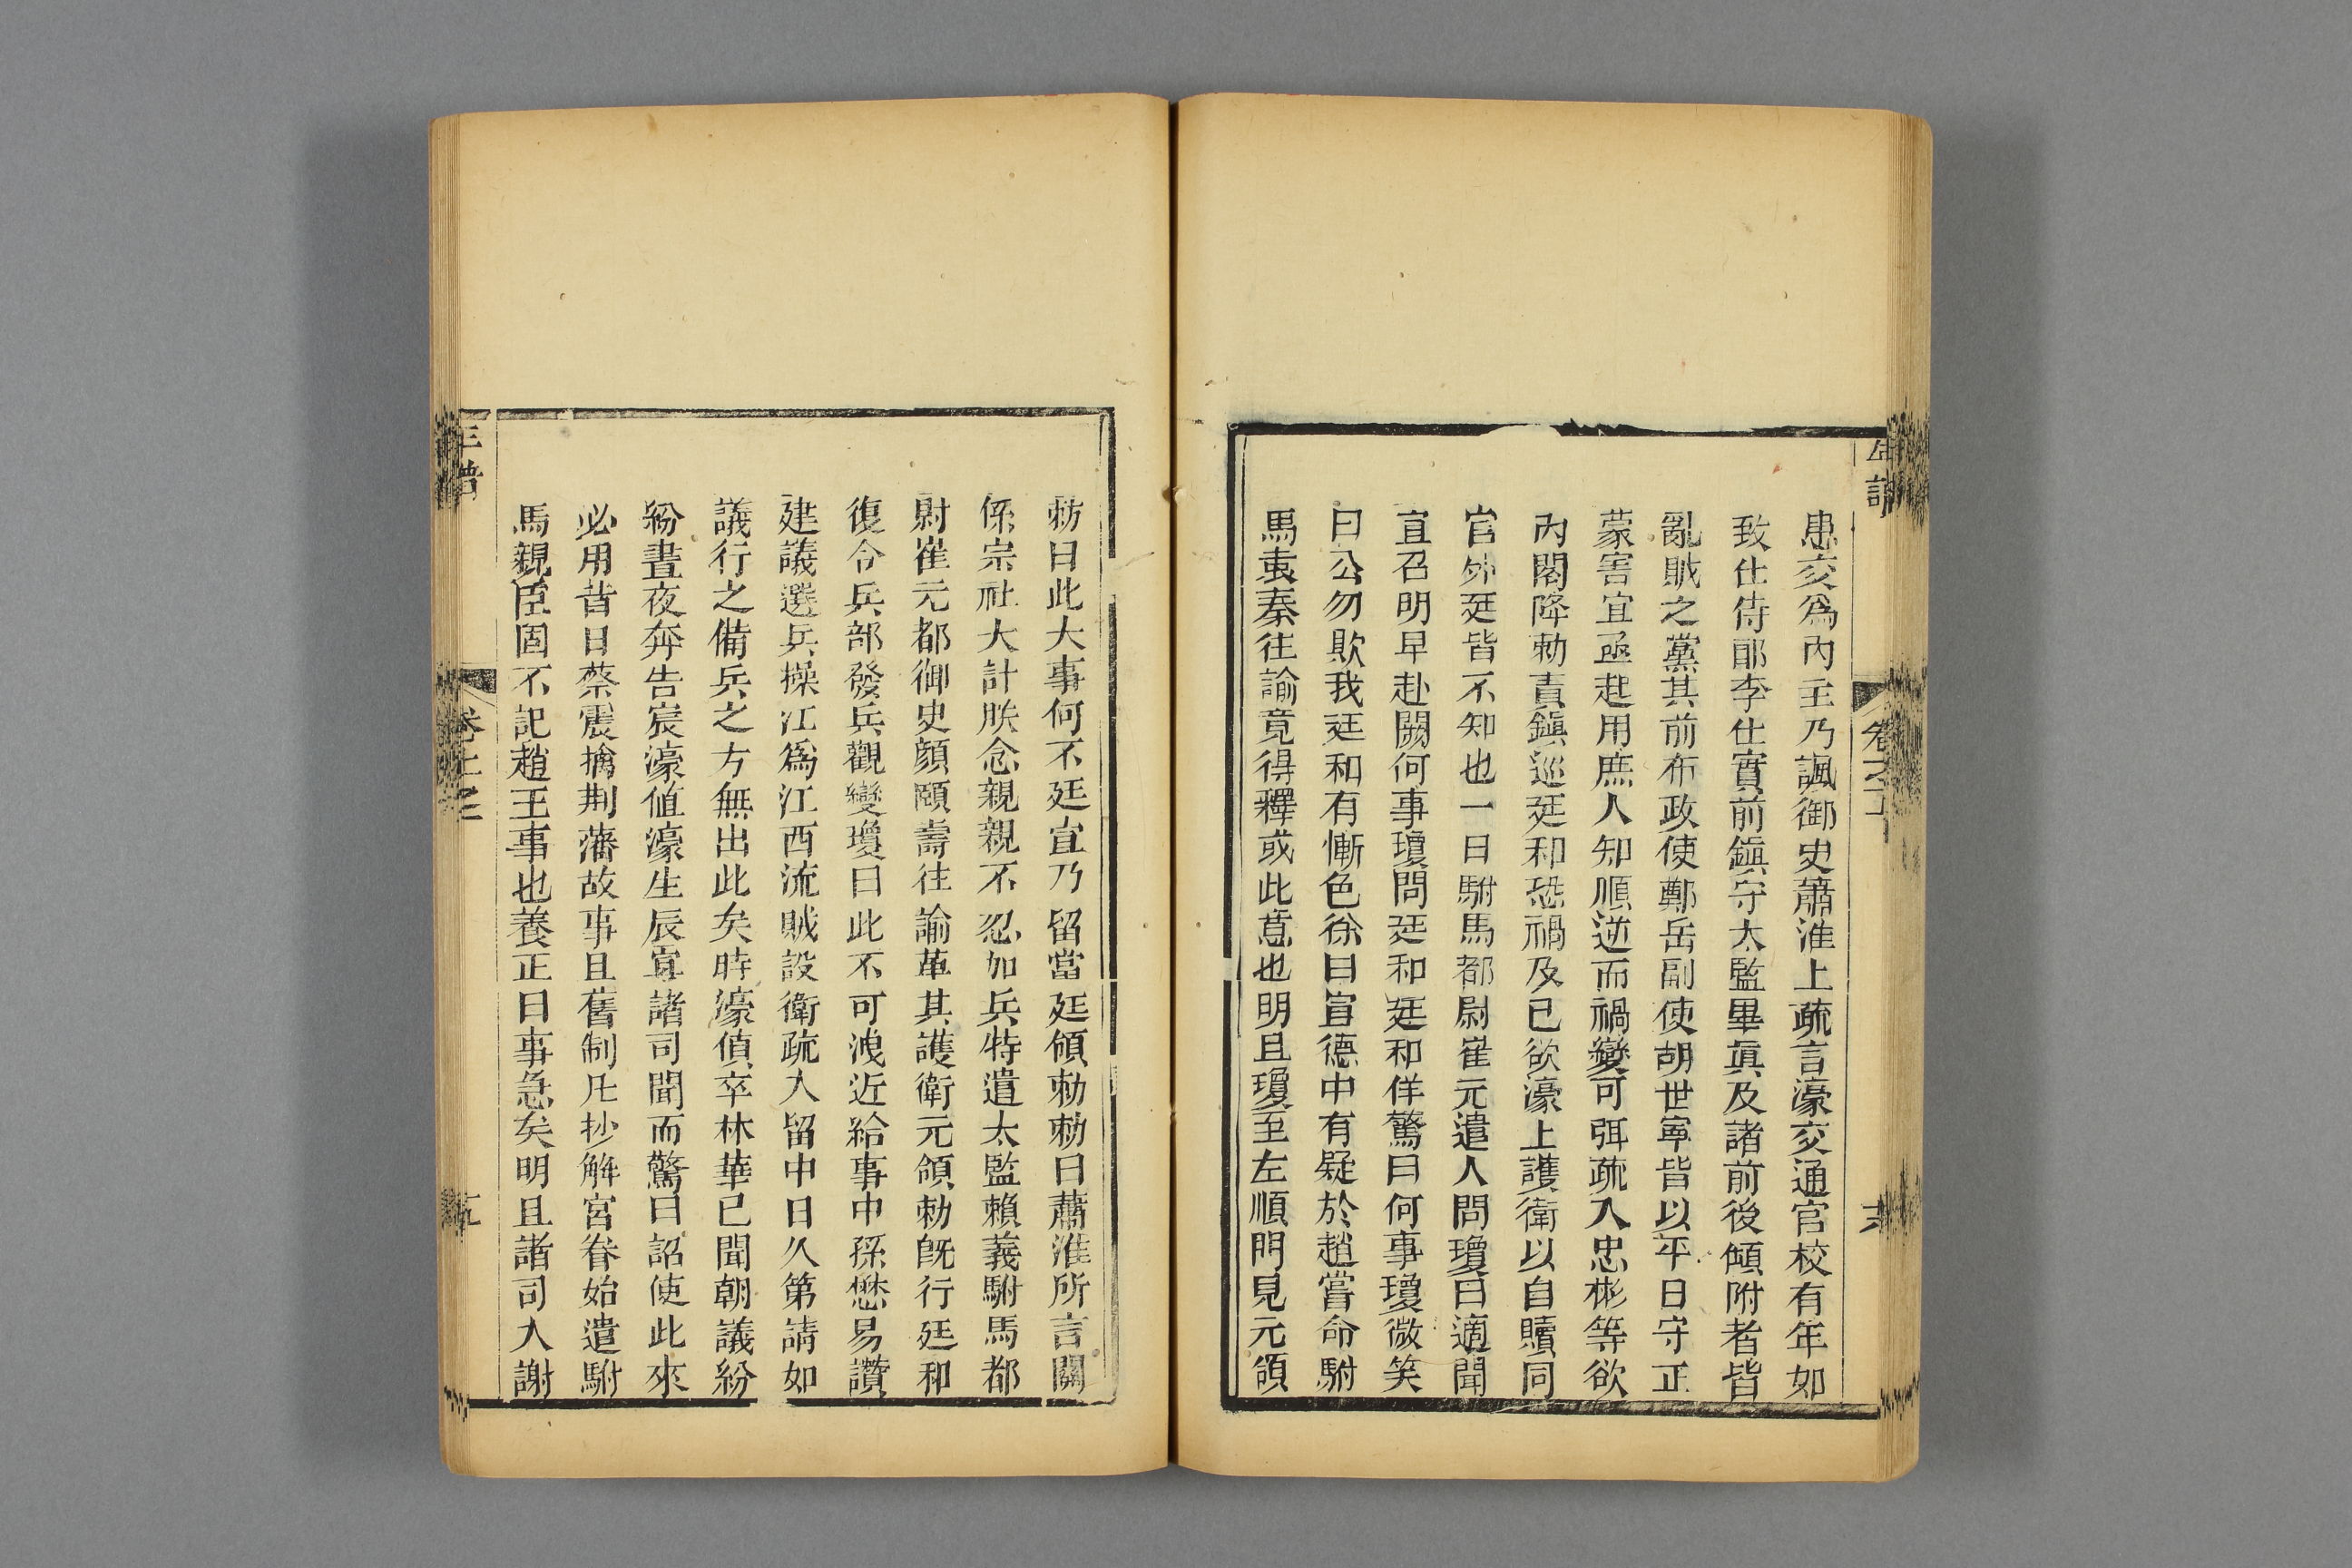 患交爲內主乃諷御史蕭淮上疏言濠交通官校有年如
致仕侍郎李仕實前鎮守太監畢眞及諸前後傾附者皆
亂賊之黨其前布政使鄭岳副使胡世寧皆以平日守正
蒙害宜亟起用庶人知順逆而禍變可弭疏入忠彬等欲
內閣降勅責鎮巡廷和恐禍及已欲濠上護衛以自贖同
官外廷皆不知也一日駙馬都尉崔元遣人問瓊曰適聞
宣召明早赴闕何事瓊問廷和廷和佯驚曰何事瓊微笑
曰公勿欺我廷和有慚色徐曰宣德中有疑於趙嘗命駙
馬袁泰往諭竟得釋或此意也明旦瓊至左順門見元領
勅曰此大事何不廷宣乃留當廷領勅勅曰蕭淮所言關
係宗社大計朕念親親不忍加兵特遣太監賴義駙馬都
尉崔元都御史顏頤壽往諭革其護衛元領勅旣行廷和
復令兵部發兵觀變瓊曰此不可洩近給事中孫懋易讚
建議選兵操江爲江西流賊設衛疏入留中日久第請如
議行之備兵之方無出此矣時濠偵卒林華已聞朝議紛
紛晝夜奔告宸濠值濠生辰宴諸司聞而驚曰詔使此來
必用昔日蔡震擒荆藩故事且舊制凡抄解宮眷始遣駙
馬親臣固不記趙王事也養正曰事急矣明旦諸司入謝